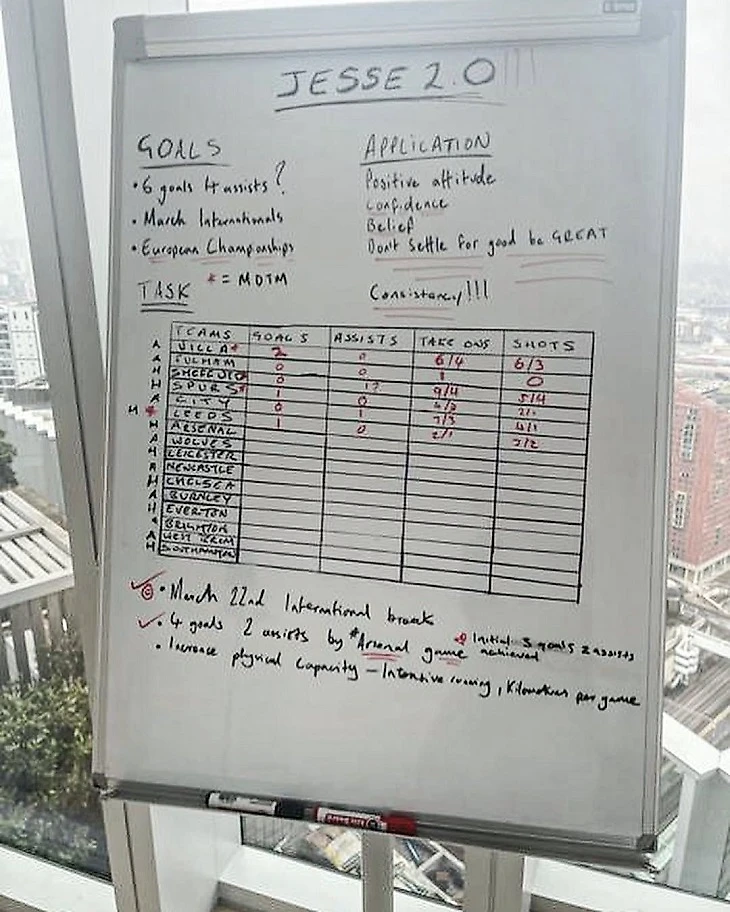 JESSE 2.0!!!
GOALS
• 6 goals 4 assists?
• March Internationals
• European Championships
* = MOTM
APPLICATION
Positive attitude
Confidence
Belief
Don't settle for good be GREAT
Consistancy!!!
TASK
TEAMS GOALS ASSISTS TAKE ONS SHOTS
A VILLA* 2 0 6/4 6/3
A FULHAM 0 0 1 0
H 0 1? 9/4 5/4
H SPURS* 1 0
A CITY 0 1
H * LEEDS 1 0 2/1 2/2
H ARSENAL
A WOLVES
H LEICESTER
A NEWCASTLE
H CHELSEA
A BURNLEY
H EVERTON
BRIGHTON
A WEST BROM
H SOUTHAMPTON
• March 22nd International break
• 4 goals 2 assists by *Arsenal game
Initial 3 goals 2 assists achieved
• Increase physical capacity – Intensive running, Kilometres per game